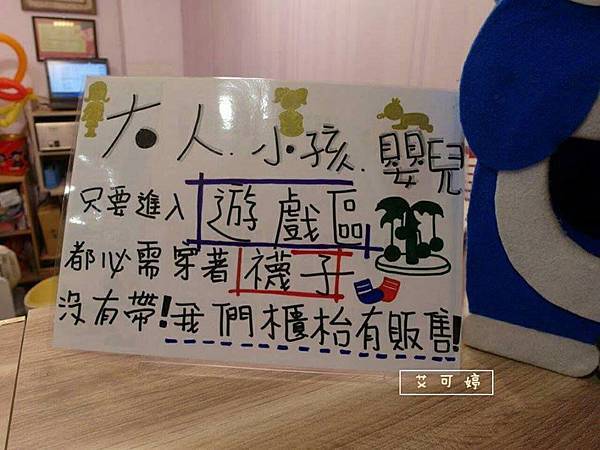 大人.小孩.嬰兒
只要進入遊戲區
都必需穿著襪子
沒有帶!我們櫃枱有販售!
艾可婷